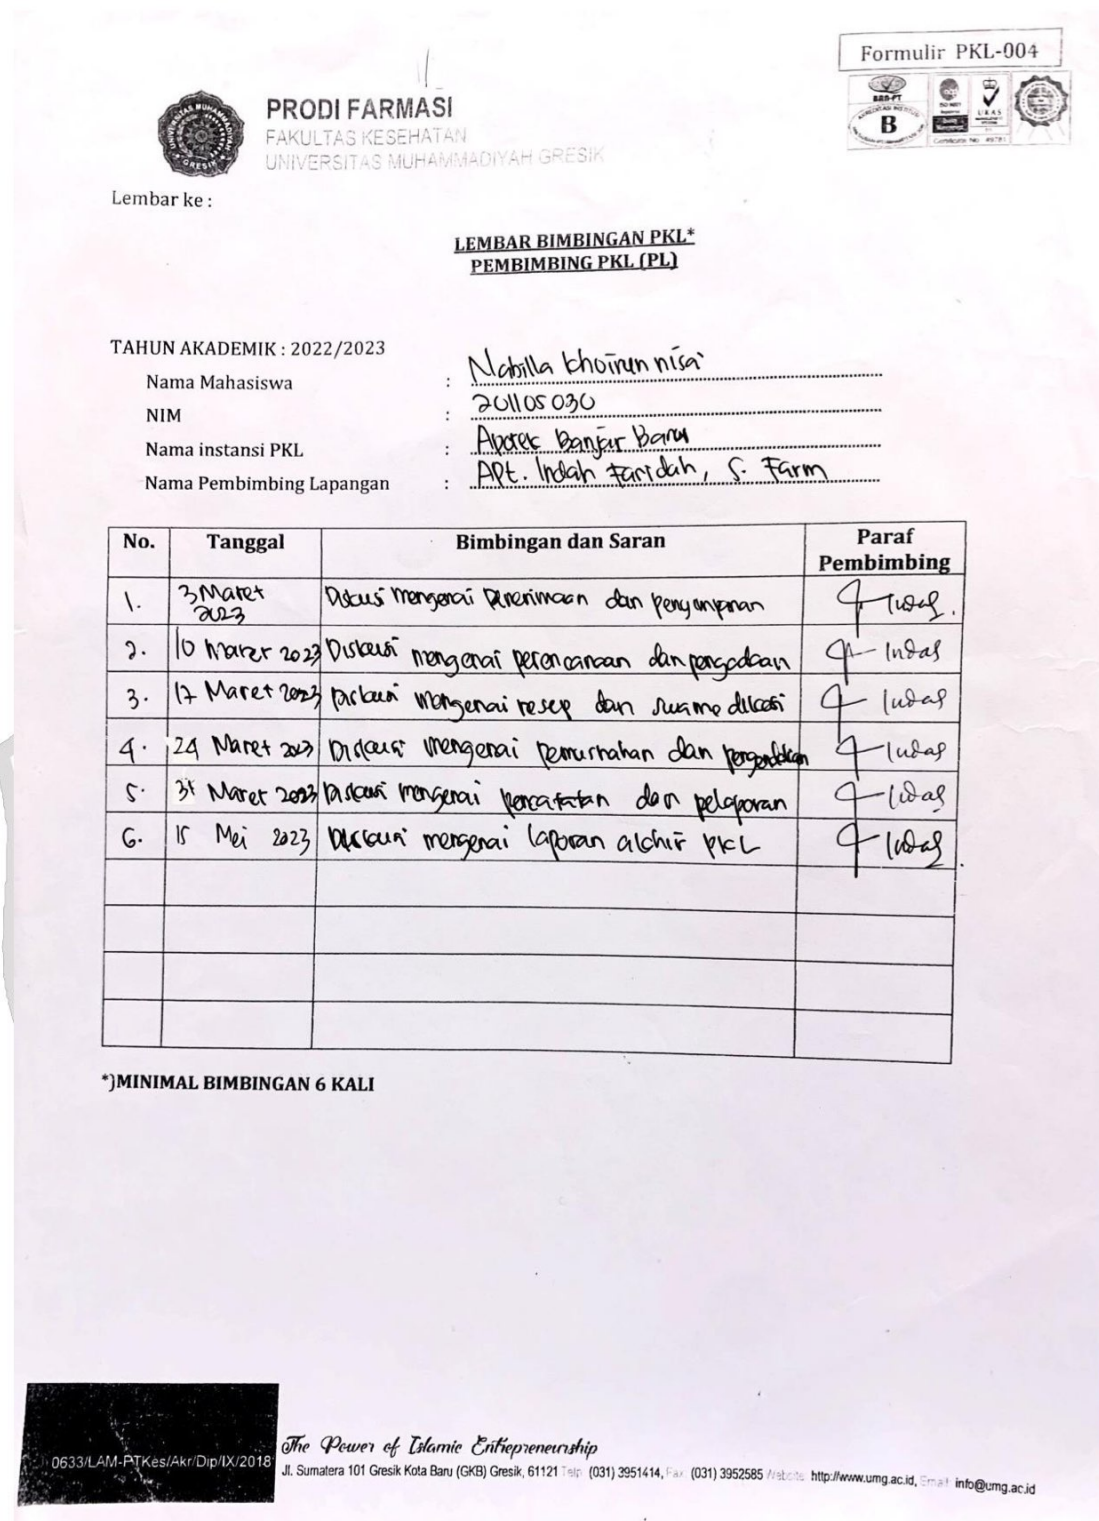 Formulir PKL-004
BAN-PT
B
ISO 9001
UKAS
PRODI FARMASI
FAKULTAS KESEHATAN
UNIVERSITAS MUHAMMADIYAH GRESIK
Lembar ke :
LEMBAR BIMBINGAN PKL*
PEMBIMBING PKL (PL)
TAHUN AKADEMIK : 2022/2023
Nama Mahasiswa : Nabilla Khoirun nisa'
NIM : 201105030
Nama instansi PKL : Apotek Banjar Baru
Nama Pembimbing Lapangan : Apt. Indah Faridah, S. Farm
No. Tanggal Bimbingan dan Saran Paraf Pembimbing
1. 3 Maret 2023 Diskusi mengenai penerimaan dan penyimpanan Indah
2. 10 Maret 2023 Diskusi mengenai perencanaan dan pengadaan Indah
3. 17 Maret 2023 Diskusi mengenai resep dan swamedikasi Indah
4. 24 Maret 2023 Diskusi mengenai pemusnahan dan pengendalian Indah
5. 31 Maret 2023 Diskusi mengenai pencatatan dan pelaporan Indah
6. 15 Mei 2023 Diskusi mengenai laporan akhir PKL Indah
*)MINIMAL BIMBINGAN 6 KALI
0633/LAM-PTKes/Akr/Dip/IX/2018
The Power of Islamic Entrepreneurship
Jl. Sumatera 101 Gresik Kota Baru (GKB) Gresik, 61121 Telp. (031) 3951414, Fax. (031) 3952585 Website: http://www.umg.ac.id, Email: info@umg.ac.id